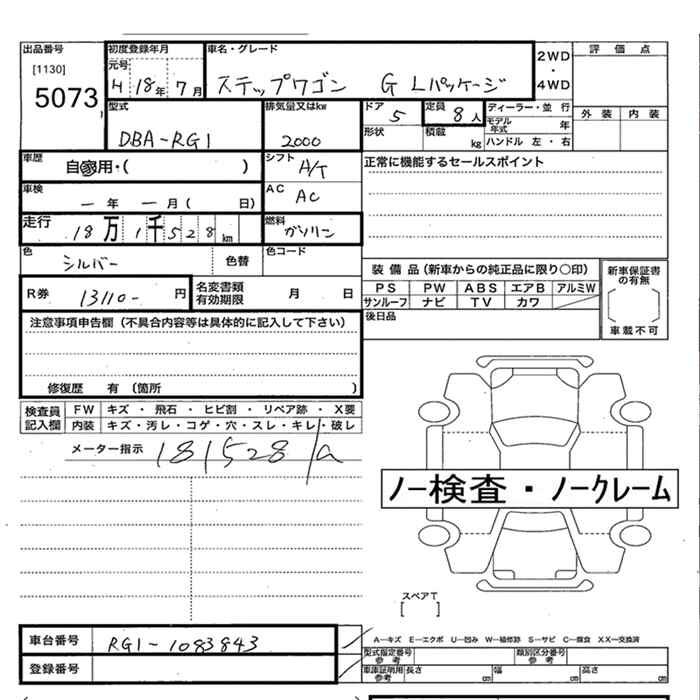 出品番号 初度登録年月 車名・グレード 2WD ・ 4WD 評価点
[1130] 元号
5073 H 18年 7月 ステップワゴン G Lパッケージ
型式 排気量又はkw ドア 5 定員 8人 ディーラー・並行 外装 内装
DBA-RG1 2000 形状 積載 kg モデル年式 年
ハンドル 左・右
車歴 自家用・( ) シフト A/T 正常に機能するセールスポイント
車検 ー年 ー月( 日) AC AC
走行 18万1千528km 燃料 ガソリン
色 シルバー 色替 色コード
装備品(新車からの純正品に限り○印) 新車保証書の有無
R券 13110- 円 名変書類有効期限 月 日 PS PW ABS エアB アルミW
サンルーフ ナビ TV カワ
注意事項申告欄(不具合内容等は具体的に記入して下さい) 後日品 車載不可
修復歴 有(箇所 )
検査員記入欄 FW キズ・飛石・ヒビ割・リペア跡・X要
内装 キズ・汚レ・コゲ・穴・スレ・キレ・破レ
メーター指示 181528
ノー検査・ノークレーム
スペアT
[ ]
車台番号 RG1-1083843 A―キズ E―エクボ U―凹み W―補修跡 S―サビ C―腐食 XX―交換済
型式指定番号 参考 類別区分番号 参考
登録番号 車庫証明用 参考 長さ cm 幅 cm 高さ cm